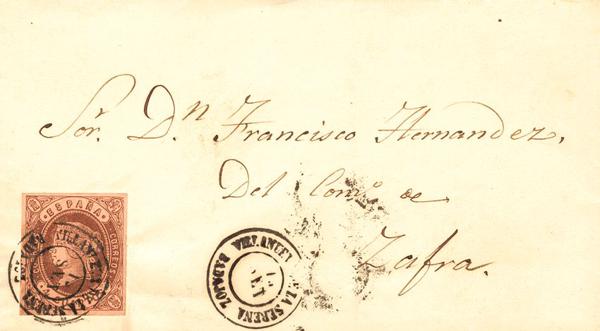 Sor. Dn Francisco Hernandez,
Del Como. de
Zafra.
ESPAÑA
CORREOS
LA SERENA
VILLANUEVA
DE LA SERENA
BADAJOZ